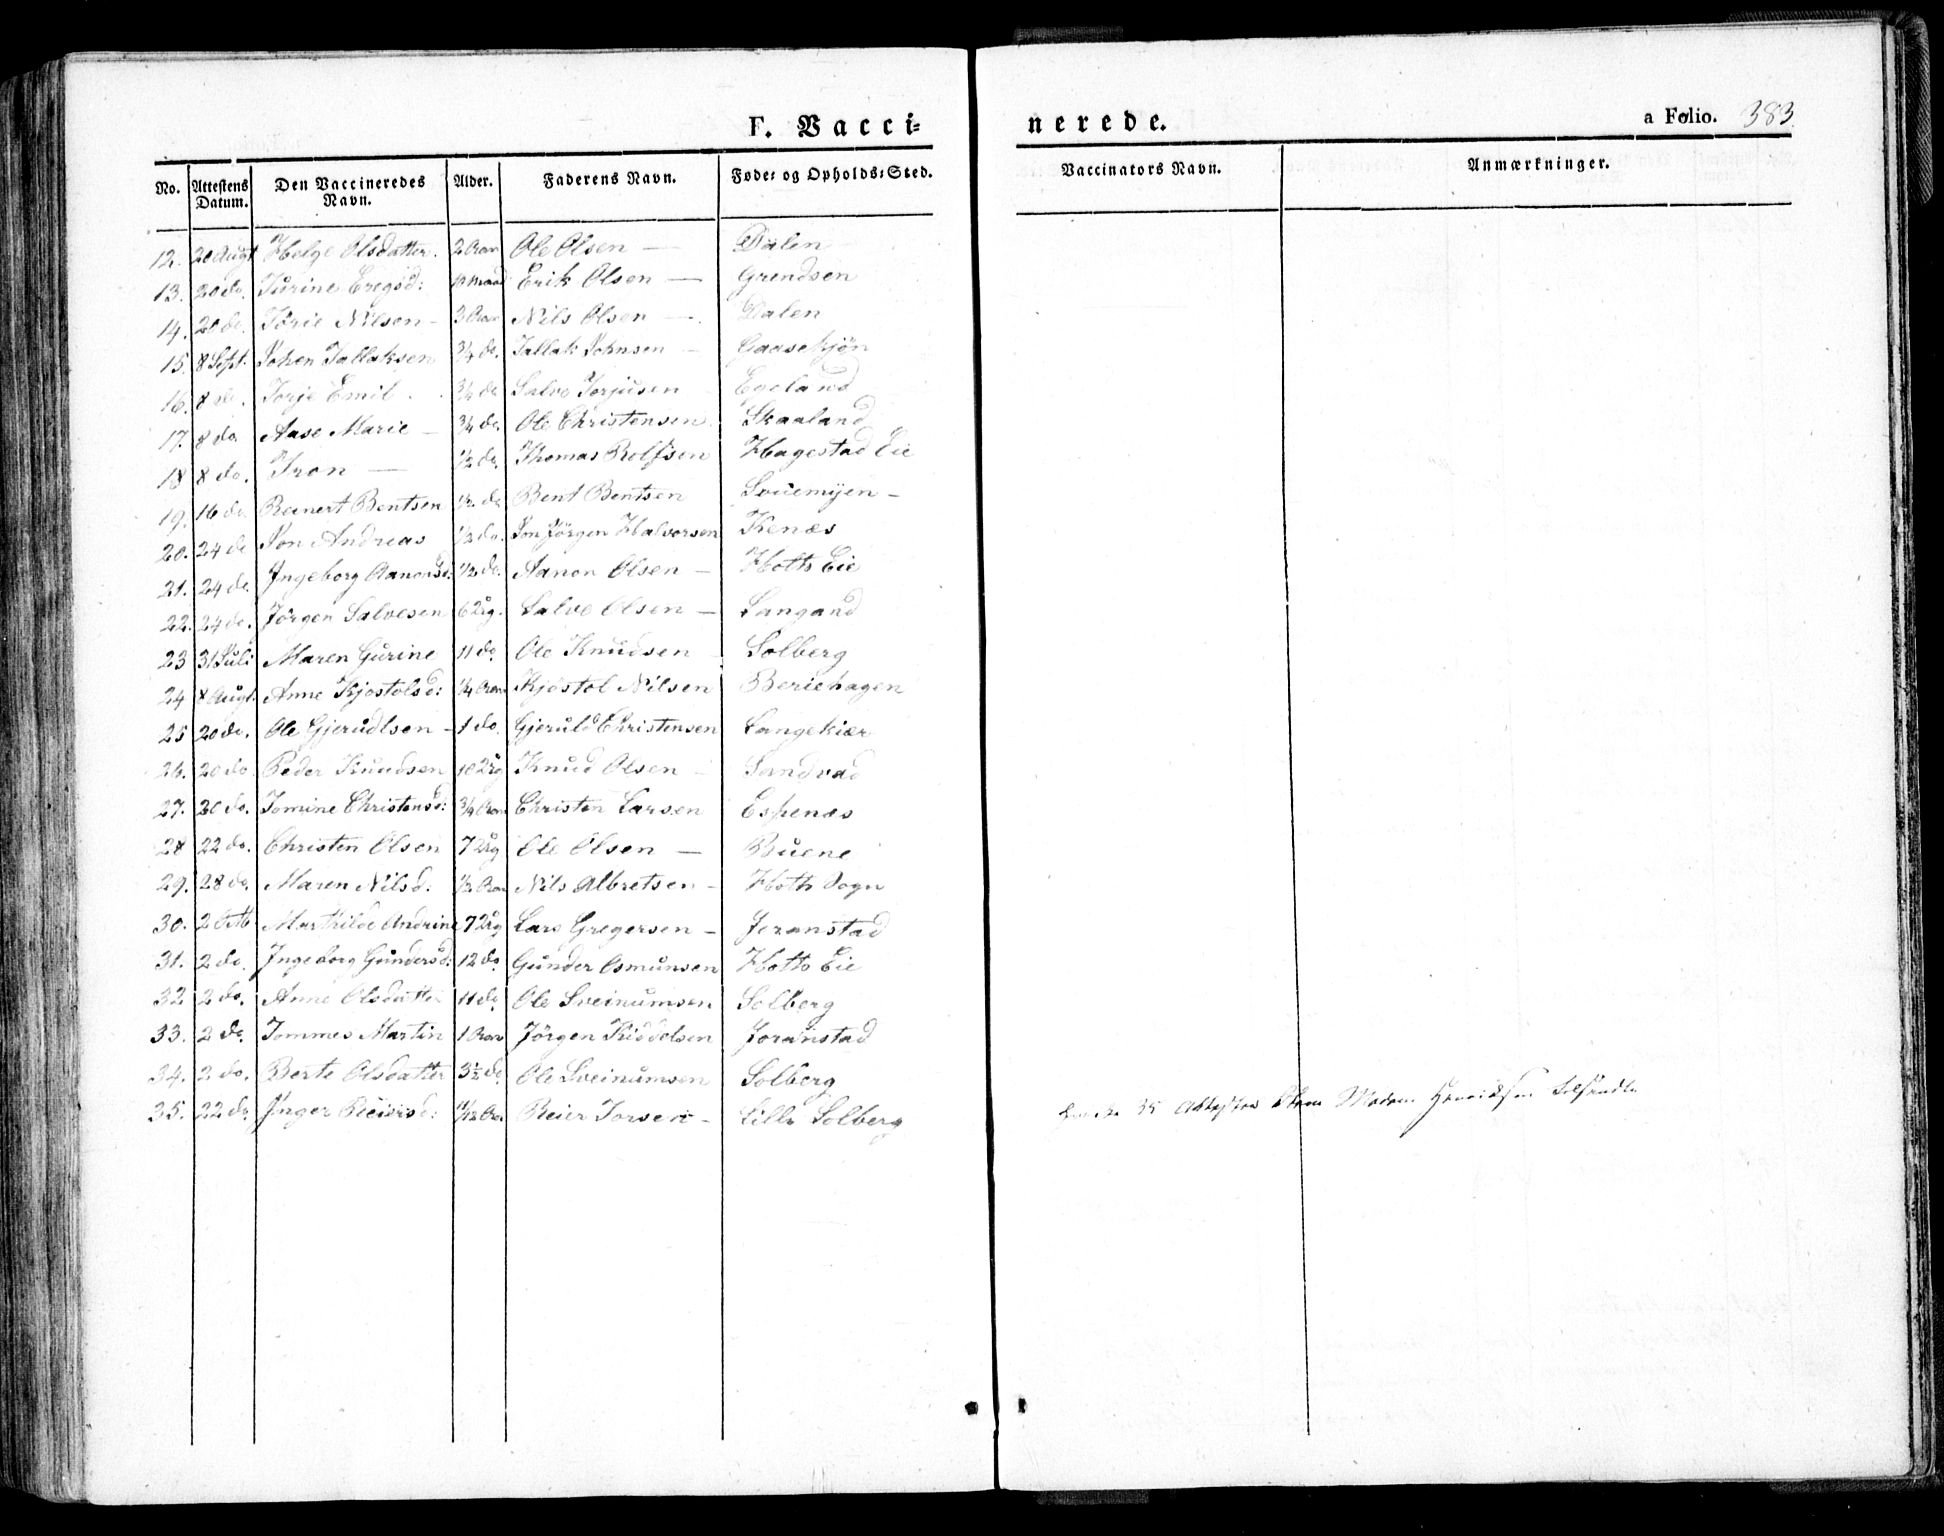 F. Vacci=
nerede.
a Folio. 383
No. Attestens Datum. Den Vaccineredes Navn. Alder. Faderens Navn. Føde- og Opholds-Sted. Vaccinators Navn. Anmærkninger.
12. 20 Augt Helge Olsdatter. 2 Aar Ole Olsen — Dalen
13. 20 do. Turine Eregsd: 10 Maad Erik Olsen — Grendsen
14. 20 do. Torie Nilsen - 3 Aar Nils Olsen — Dalen
15. 8 Sept. Johen Tallaksen 3/4 do. Tallak Johnsen — Gaasekjön
16. 8 do. Torje Emil . 3/4 do Salve Torjusen Egeland
17. 8 do Aase Marie — 3/4 do. Ole Christensen Skaaland
18 8 do. Tron — 1/2 do. Thomas Rolfsen Hagestad Eie
19. 16 do Reinert Bentsen 1/2 do Bent Bentsen Svuemyen -
20. 24 do Jon Andreas 1/2 do. Jon Jörgen Halvorsen Kenæs
21. 24 do. Ingeborg Aanonsd: 1/2 do. Aanon Olsen — Holts Eie
22. 24 do. Jörgen Salvesen 6 Uug. Salve Olsen — Langand
23 31 Juli Maren Gurine 11 do Ole Knudsen Solberg
24 8 Augt. Anne Kjøstolsd: 1/4 Aar Kjøstol Nilsen Beriehagen
25 20 do. Ole Gjerudlsen - 1 do. Gjeruld Christensen Langekiær
26. 20 do Peder Knudsen 10 Uug Knud Olsen — Sandvad
27. 20 do. Tomine Christensd: 3/4 Aar Christen Larsen Espenæs
28 22 do. Christen Olsen 7 Uug Ole Olsen — Buene
29. 28 do. Maren Nilsd: 1/2 Aar Nils Albretsen - Holts Sogn
30. 2 Octb. Marthilde Andrine 7 Uug Lars Gregersen - Joranstad
31. 2 do. Ingeborg Gundersd: 12 do. Gunder Osmunsen Holts Eie
32. 2 do. Anne Olsdatter 11 do Ole Sveinumsen Solberg
33. 2 do. Tommes Martin 1 Aar Jörgen Kiddelsen Joranstad
34. 2 do. Berte Olsdatter 3½ do. Ole Sveinumsen Solberg
35. 22 do. Inger Reiersd: 11/12 Aar Reier Torsen - Lille Solberg
35 Attester Madam Henriksen